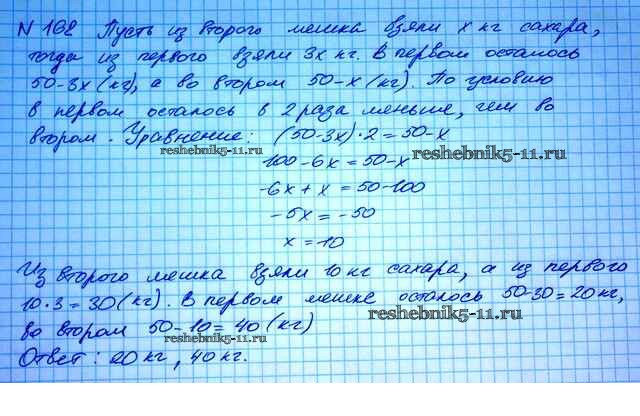 N 168 Пусть из второго мешка взяли x кг сахара,
тогда из первого взяли 3x кг. В первом осталось
50-3x (кг), а во втором 50-x (кг). По условию
в первом осталось в 2 раза меньше, чем во
втором. Уравнение: (50-3x)·2=50-x
reshebnik5-11.ru
100-6x=50-x reshebnik5-11.ru
-6x+x=50-100
-5x=-50
x=10
Из второго мешка взяли 10 кг сахара, а из первого
10·3=30 (кг). В первом мешке осталось 50-30=20кг,
reshebnik5-11.ru
во втором 50-10=40 (кг)
reshebnik5-11.ru
Ответ: 20 кг, 40 кг.